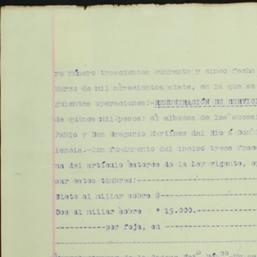 ro número trescientos cuarenta y cinco fecha
Marzo de mil novecientos siete, en la que se
guientes operaciones:-REMUNERACIÓN DE SERVIC
de quince mil pesos: al albacea de las suces
Pablo y Don Gregorio Martínez del Río á Don
iencia.-Con fundamento del inciso trece frac
na del artículo catorce de la Ley vigente, c
sar estos timbres:
Siete al millar sobre $
Dos al millar sobre " 15.000.
por foja, en